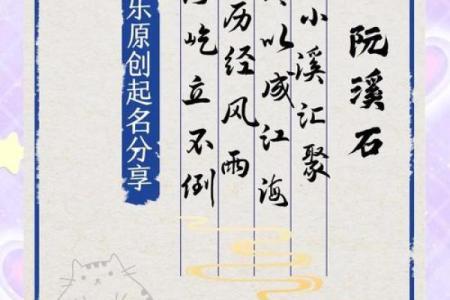 阮溪石
小溪汇聚
以成江海
历经风雨
屹立不倒
乐原创起名分享